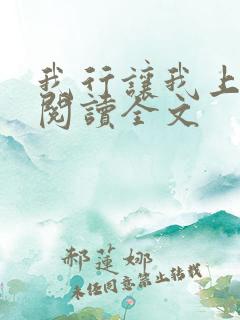 我行讓我上
閱讀全文
郝蓮娜
未经同意禁止转载